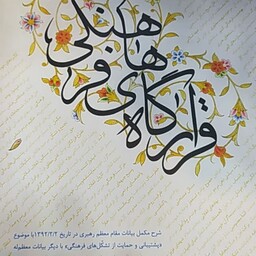 قرارگاه‌های فرهنگی
شرح مکمل بیانات مقام معظم رهبری در تاریخ ۱۳۹۲/۲/۲ با موضوع
«پشتیبانی و حمایت از تشکل‌های فرهنگی» با دیگر بیانات معظم‌له